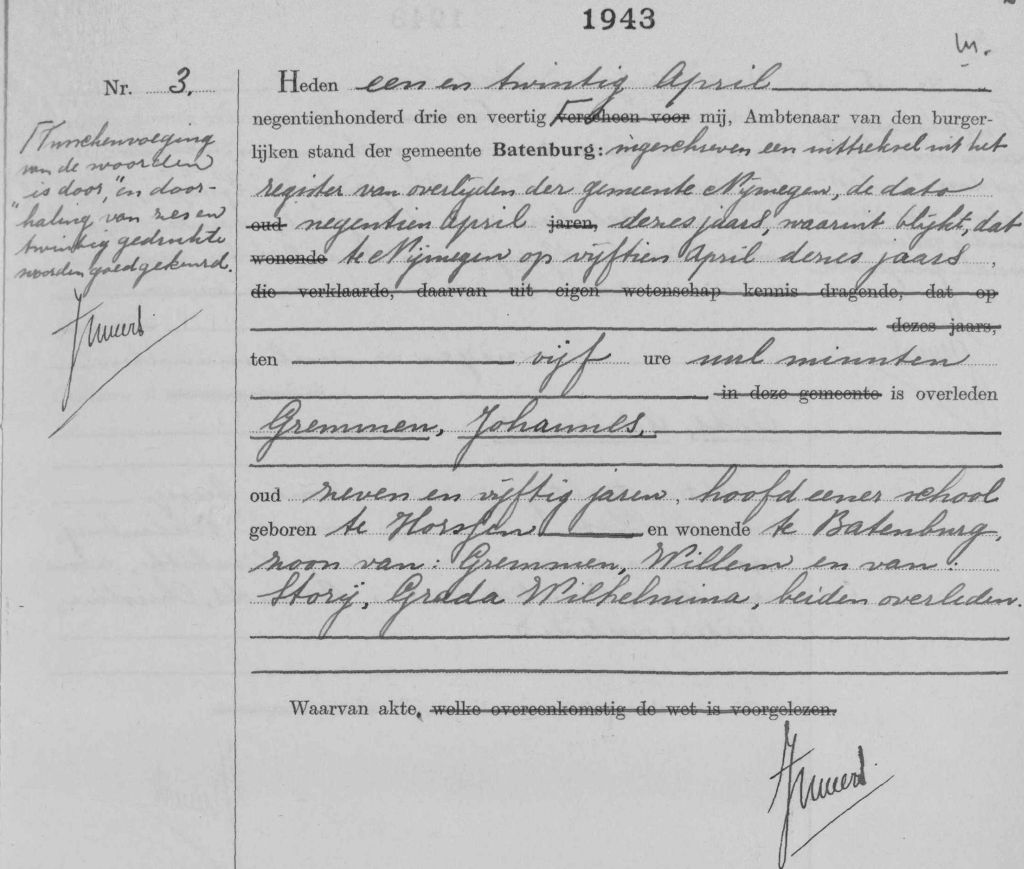 1943
m.
Nr. 3.
Tusschenvoeging
van de woorden
"is door," en door-
haling van zes en
twintig gedrukte
woorden goedgekeurd.
Heden een en twintig April
negentienhonderd drie en veertig verscheen voor mij, Ambtenaar van den burger-
lijken stand der gemeente Batenburg: ingeschreven een uittreksel uit het
register van overlijden der gemeente Nijmegen, de dato
oud negentien April jaren, dezes jaars, waaruit blijkt, dat
wonende te Nijmegen op vijftien April dezes jaars,
die verklaarde, daarvan uit eigen wetenschap kennis dragende, dat op
dezes jaars,
ten vijf ure nul minuten
in deze gemeente is overleden
Gremmen, Johannes,
oud zeven en vijftig jaren, hoofd eener school
geboren te Horssen en wonende te Batenburg,
zoon van: Gremmen, Willem en van:
Storij, Grada Wilhelmina, beiden overleden.
Waarvan akte, welke overeenkomstig de wet is voorgelezen.